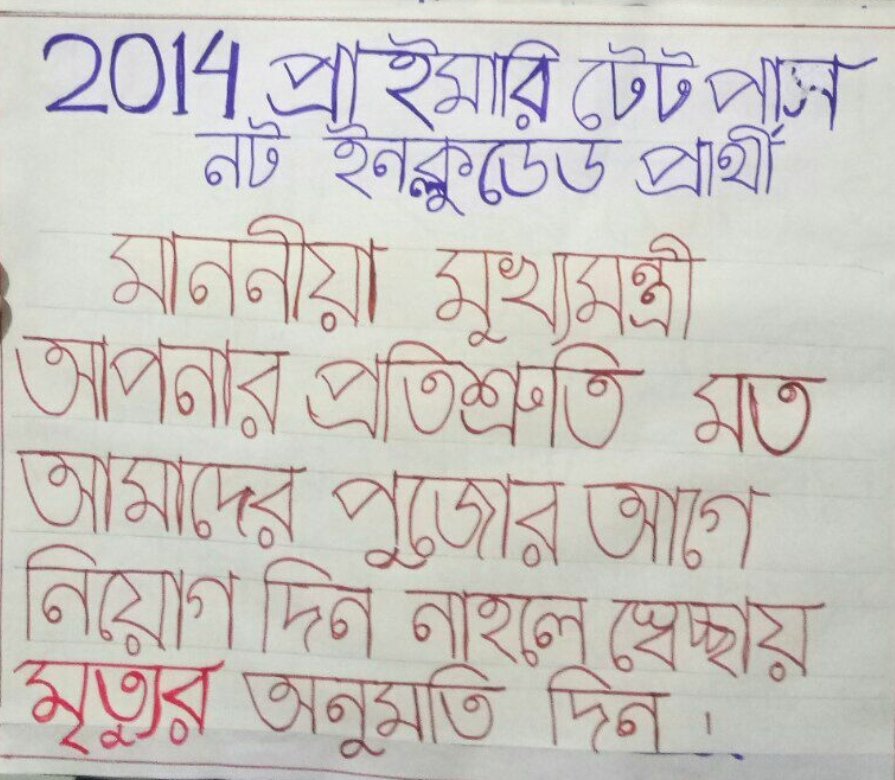 2014 প্রাইমারি টেট পাস
নট ইনক্লুডেড প্রার্থী
মাননীয়া মুখ্যমন্ত্রী
আপনার প্রতিশ্রুতি মত
আমাদের পুজোর আগে
নিয়োগ দিন নাহলে স্বেচ্ছায়
মৃত্যুর অনুমতি দিন।